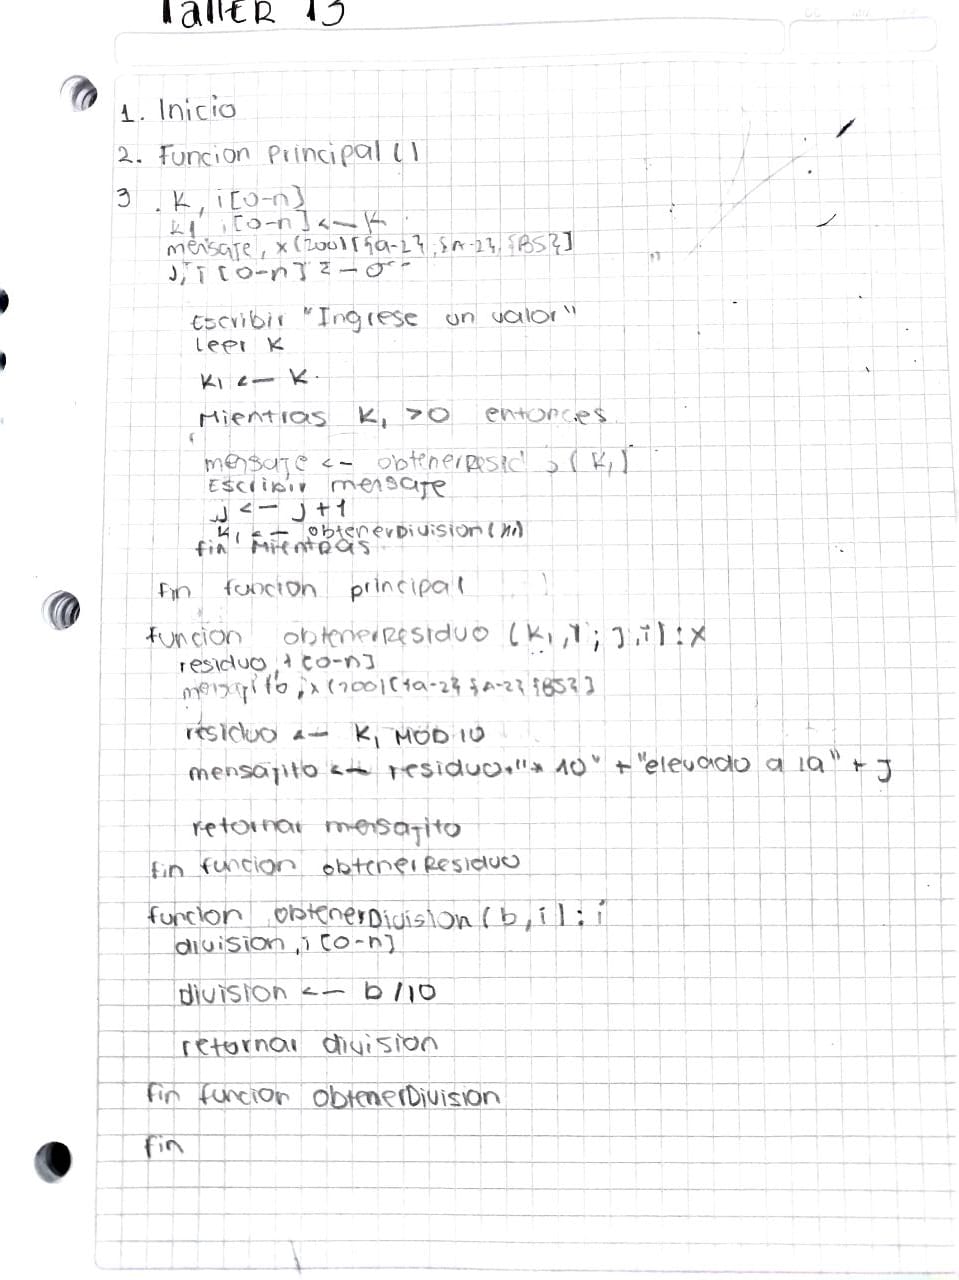 Taller 13
1. Inicio
2. Funcion Principal ()
3. K, i [0-n]
k1, i [0-n] <- K
mensaje, x (200) [{a-z}, {A-Z}, {BS}]
J, i [0-n] <- 0
Escribir "Ingrese un valor"
Leer K
K1 <- K
Mientras K1 >0 entonces
mensaje <- (K1)
Escribir mensaje
J <- J+1
K1 <- obtenerDivision
fin Mientras
fin funcion principal
funcion obtenerResiduo (K1, i; J, i): X
residuo, i [0-n]
mensajito, x (200) [{a-z} {A-Z} {BS}]
residuo <- K1 MOD 10
mensajito <- residuo + "* 10" + "elevado a la" + J
retornar mensajito
fin funcion obtenerResiduo
funcion obtenerDivision (b, i): i
division, i [0-n]
division <- b/10
retornar division
fin funcion obtenerDivision
fin